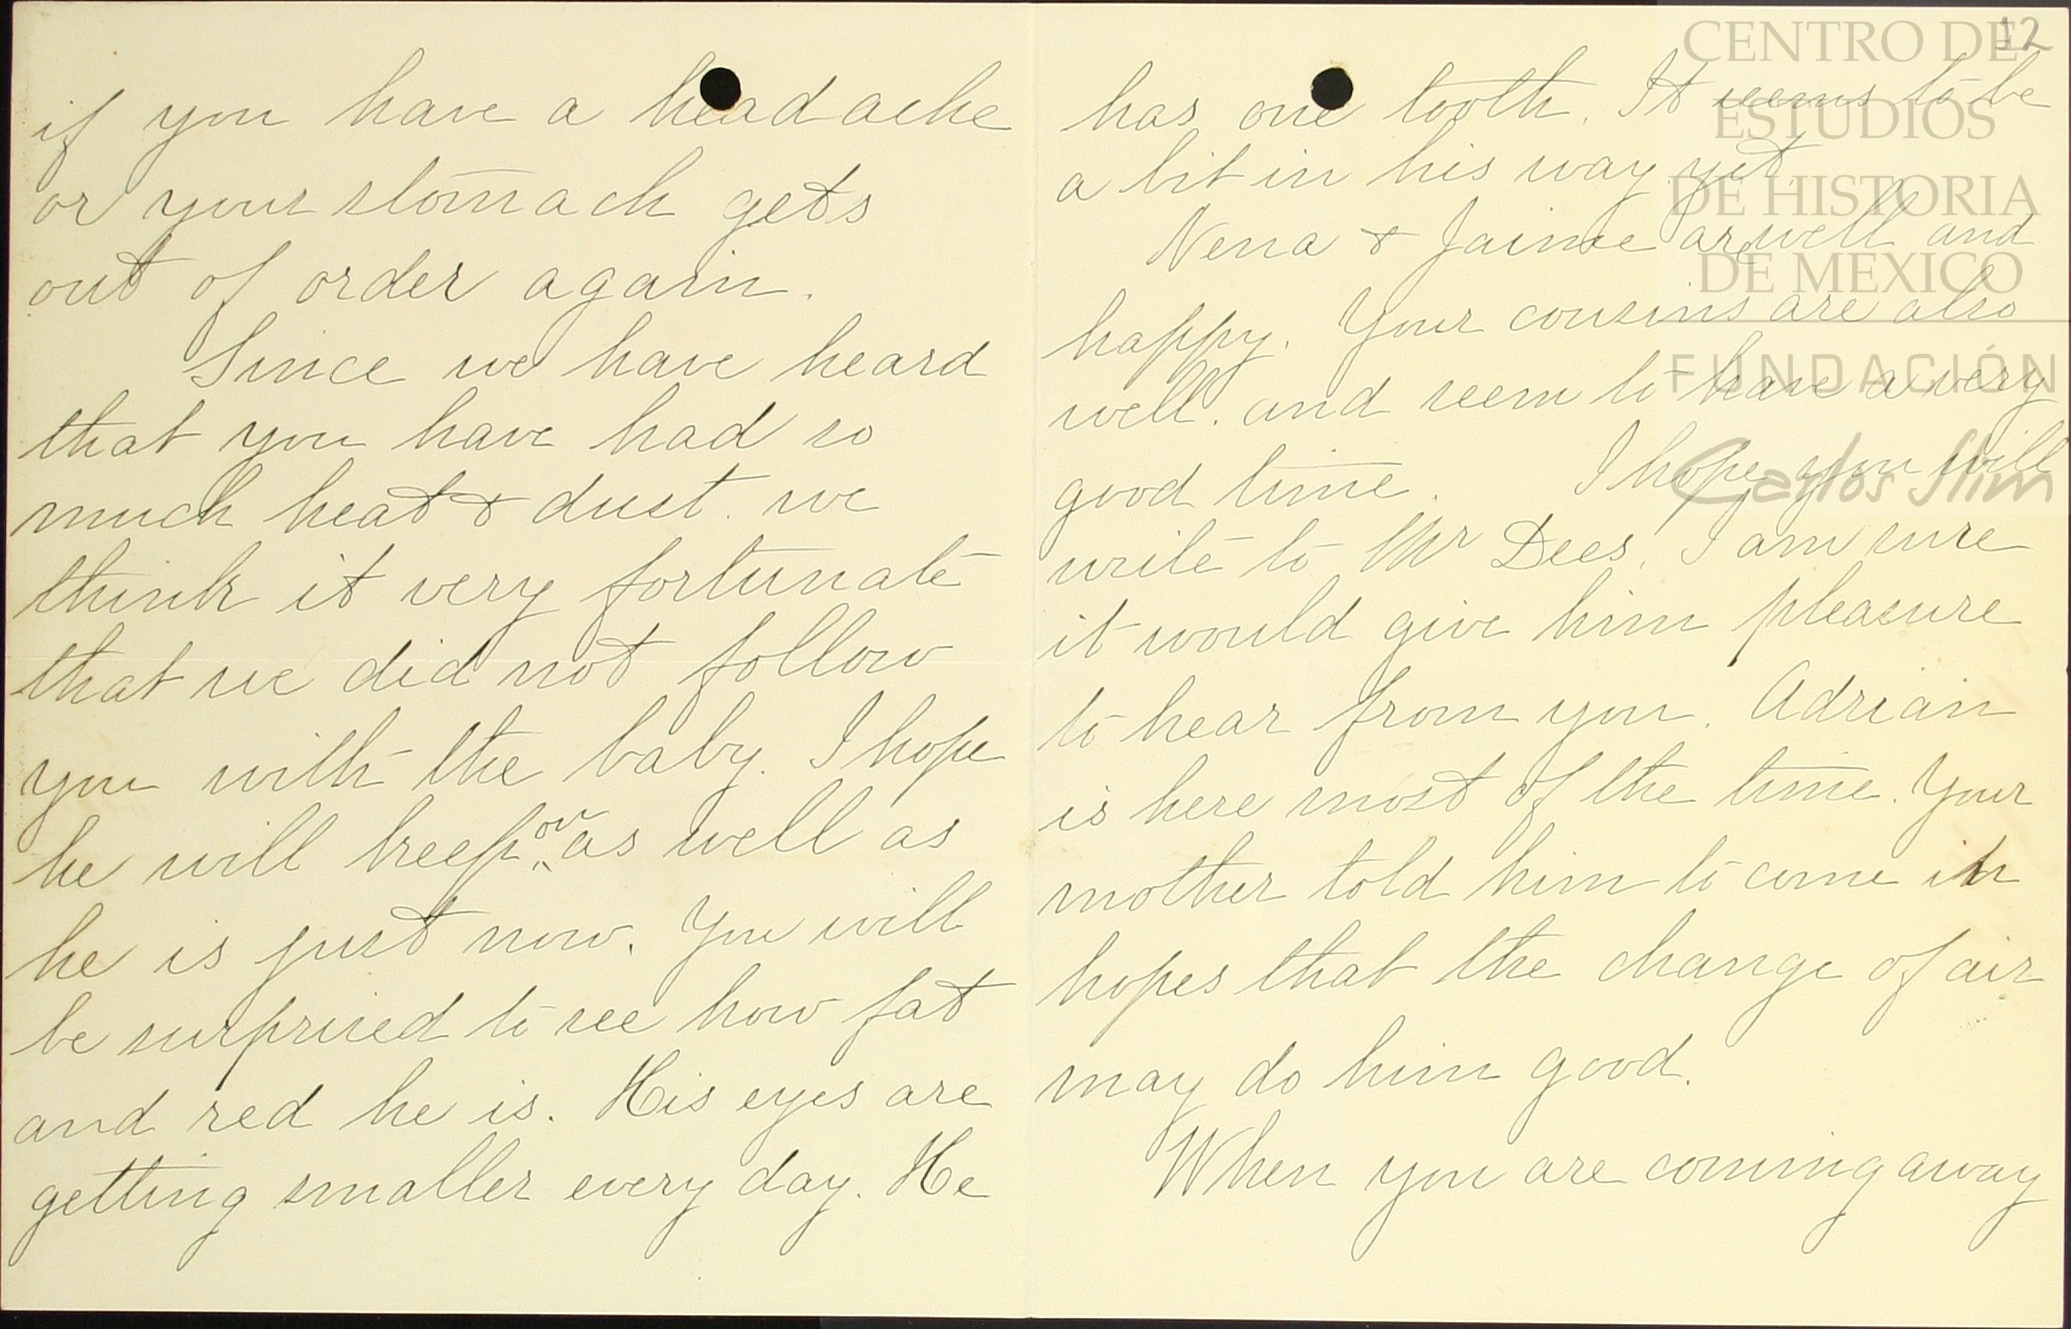 if you have a headache
or your stomach gets
out of order again.
Since we have heard
that you have had so
much heat & dust. we
think it very fortunate
that we did not follow
you with the baby. I hope
he will keep on as well as
he is just now. You will
be surprised to see how fat
and red he is. His eyes are
getting smaller every day. He
12
has one tooth. It seems to be
a bit in his way yet.
Nena & Jaime are well and
happy. Your cousins are also
well. and seem to have a very
good time. I hope you will
write to Mr Dees. I am sure
it would give him pleasure
to hear from you. Adrian
is here most of the time. Your
mother told him to come in
hopes that the change of air
may do him good.
When you are coming away
CENTRO DE
ESTUDIOS
DE HISTORIA
DE MEXICO
FUNDACIÓN
Carlos Slim